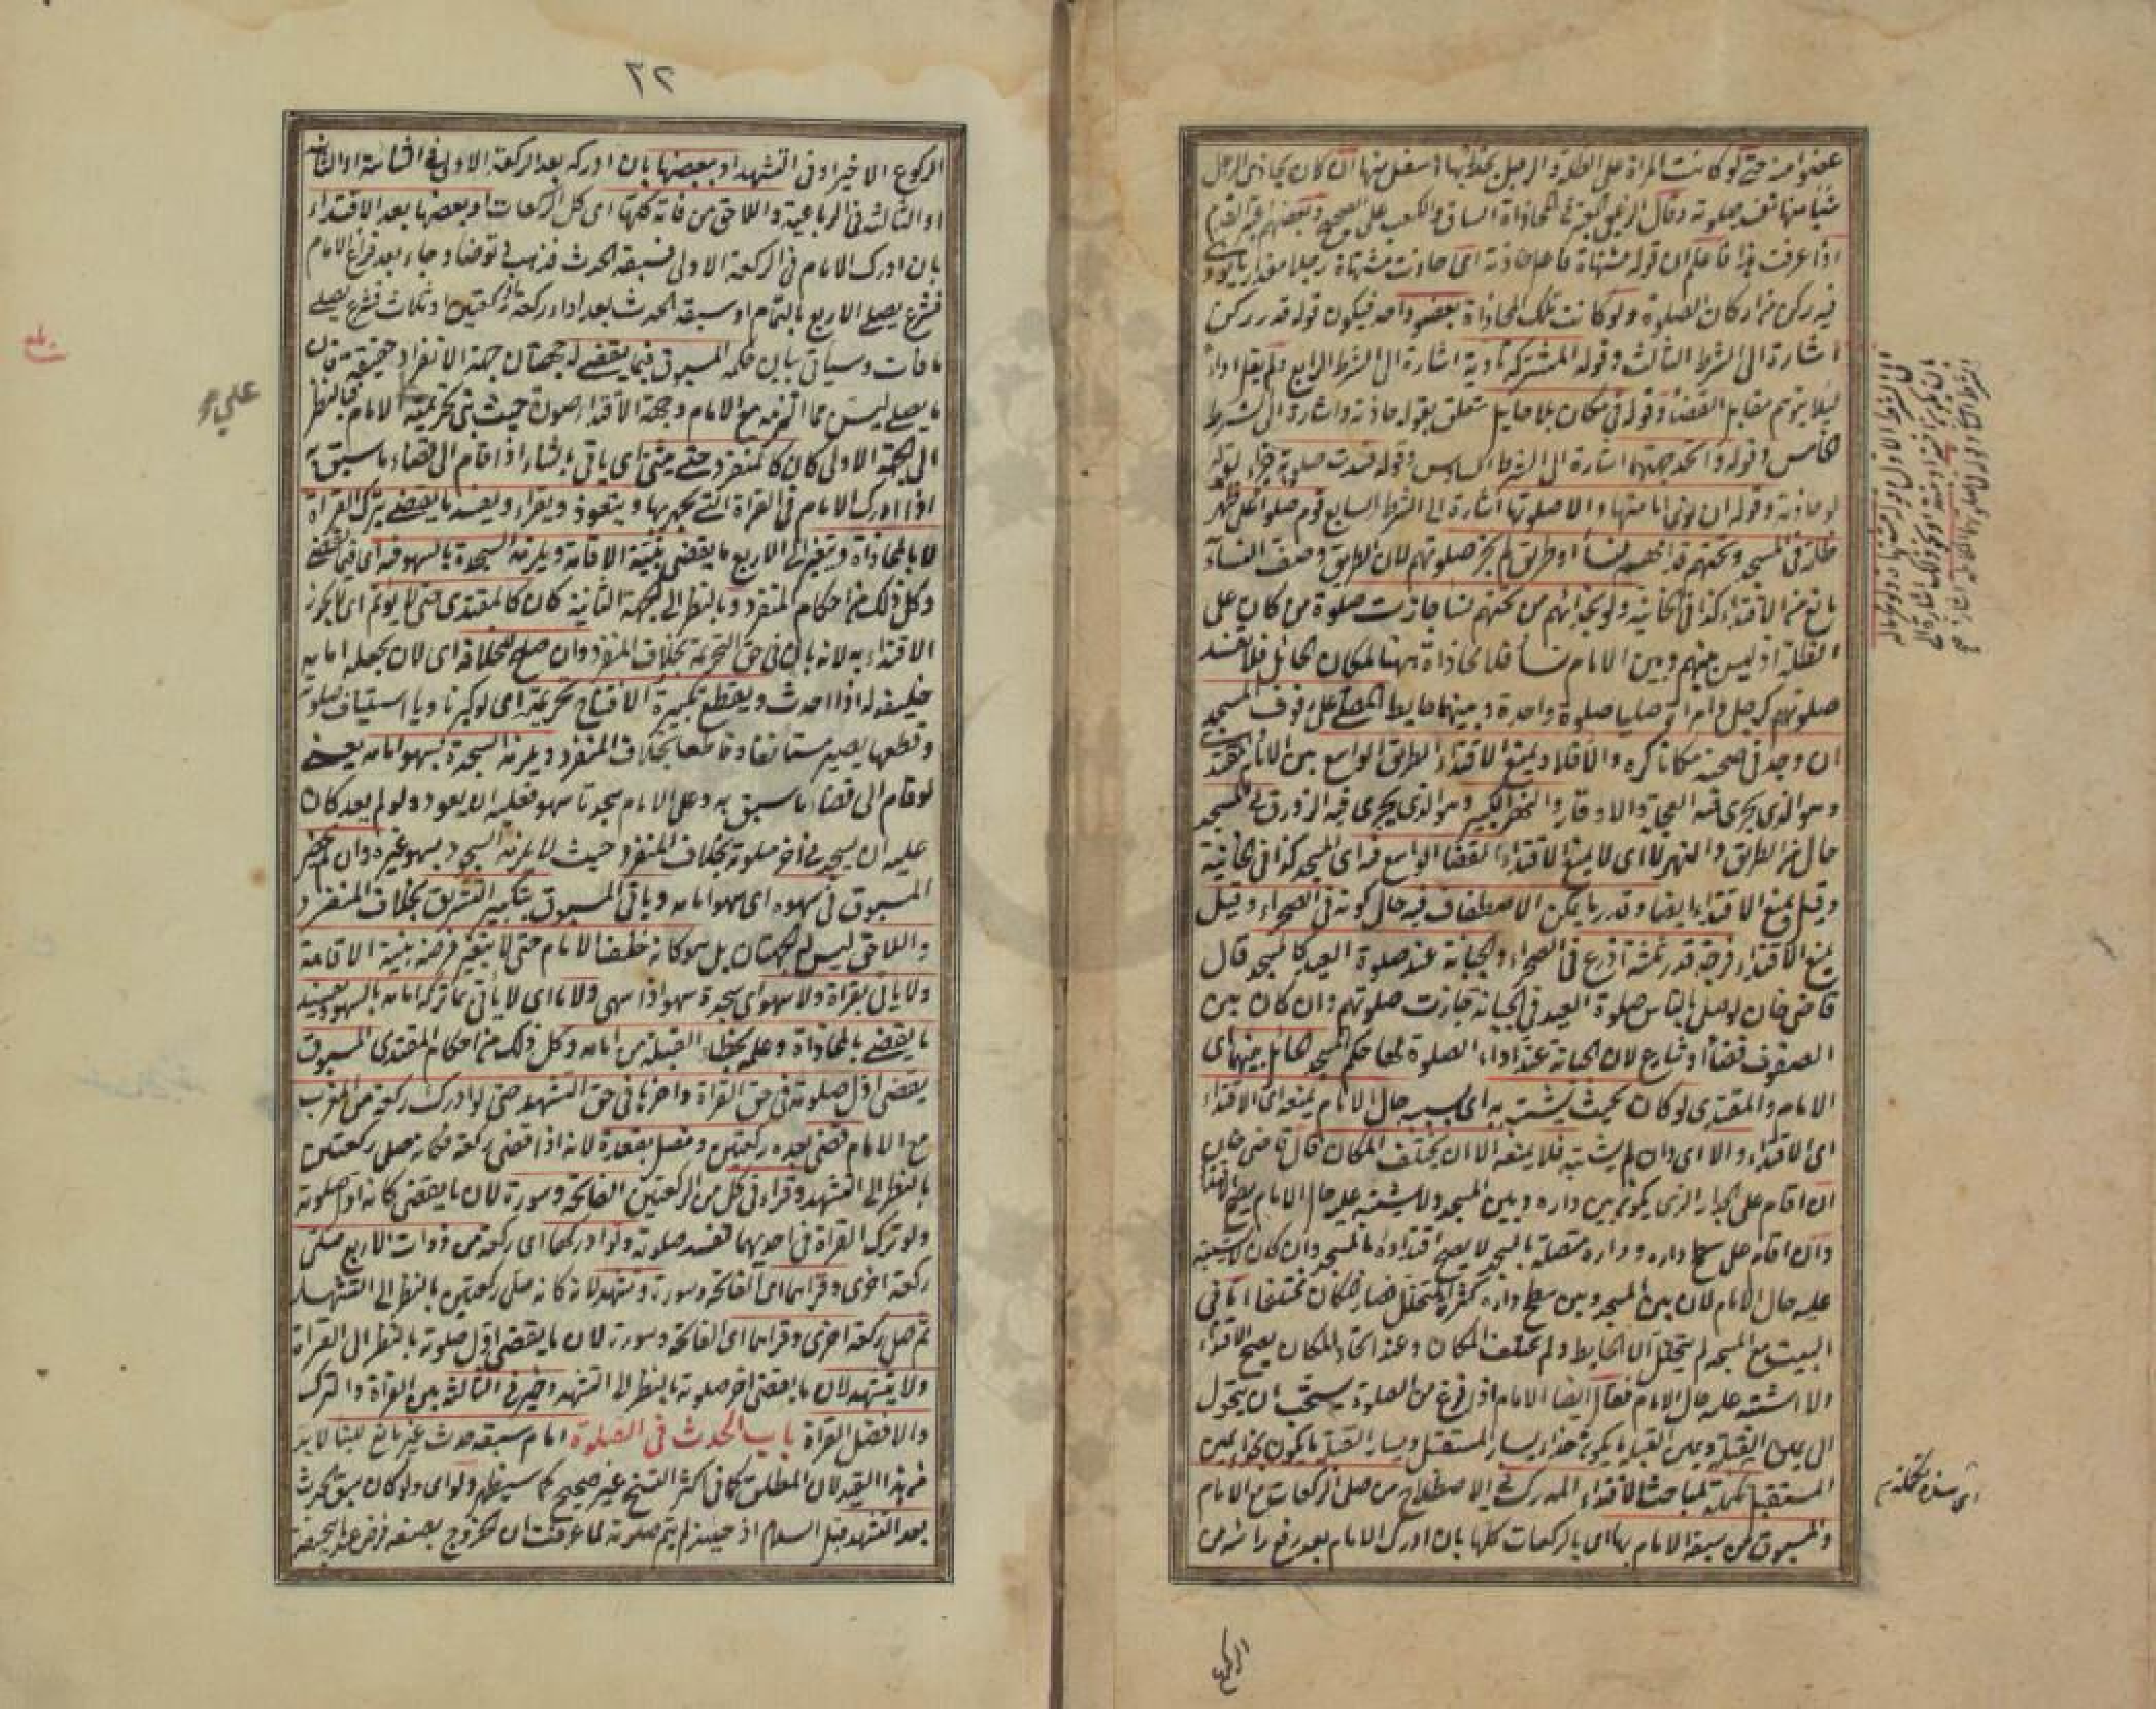 عضوا منه حتى لو كانت المرأة على الظلة والرجل بحذائها اسفل منها ان كان يحاذى الرجل
شيئا منها تفسد صلوته وقال الزيلعى المعتبر فى المحاذاة الساق والكعب على الصحيح وبعضهم اعتبر القدم
اذا عرفت هذا فاعلم ان قوله مشتهاة فاعل حاذته اى حاذت مشتهاة رجلا مقدار ما يؤدى
فيه ركن من اركان الصلوة ولو كانت تلك المحاذاة بعضو واحد فيكون قوله قدر ركن
اشارة الى الشرط الثالث وقوله المشتركة تأدية اشارة الى الشرط الرابع ولم يقل اداء
لئلا يتوهم مقابل القضاء وقوله فى مكان بلا حايل متعلق بقوله حاذته واشارة الى الشرط
الخامس وقوله واتحد جهتهما اشارة الى الشرط السادس وقوله فسدت صلوته جزاء لقوله
لو حاذته وقوله ان نوى امامتها والا صلوتها اشارة الى الشرط السابع قوم صلوا على ظهر
ظلة فى المسجد وتحتهم قدامهم نساء او طريق لم يجز صلوتهم لان الطريق وصف النساء
مانع من الاقتداء كذا فى الخانية ولو بحذائهم من تحتهم نسا جازت صلوة من كان على
الظلة اذ ليس بينهم وبين الامام نساء فلا محاذاة ههنا لمكان الحائل فلا تفسد
صلوتهم كرجل وامرأة صليا صلوة واحدة وبينهما حايط المصلى على رفوف المسجد
ان وجد فى صحنه مكانا كره والا فلا ويمنع الاقتداء الطريق الواسع بين الامام والمقتدى
وهو الذى يجرى فيه العجلة والاوقار والنهر الكبير وهو الذى يجرى فيه الزورق فى المسجد
حال من الطريق والنهر لا اى لا يمنع الاقتداء الفضاء الواسع فيه اى المسجد كذا فى الخانية
وقيل يمنع الاقتداء ايضا وقدر ما يمكن الاصطفاف فيه حال كونه فى الصحراء وقيل
يمنع الاقتداء فرجة قدر ثلثة اذرع فى الصحراء والجبانة عند صلوة العيد كالمسجد قال
قاضى خان لو صلى بالناس صلوة العيد فى الجبانة جازت صلوتهم وان كان بين
الصفوف فضاء او شارع لان الجبانة عند اداء الصلوة لها حكم المسجد الحائل بينهما اى
الامام والمقتدى لو كان بحيث يشتبه به اى بسببه حال الامام يمنعه اى الاقتداء
اى الاقتداء والا اى وان لم يشتبه فلا يمنعه الا ان يختلف المكان قال قاضى خان
ان قام على الجدار الذى يكون بين داره وبين المسجد ولا يشتبه عليه حال الامام يصح الاقتداء
وان قام على سطح داره وداره متصلة بالمسجد لا يصح اقتداؤه بالمسجد وان كان لا يشتبه
عليه حال الامام لان بين المسجد وبين سطح داره كثير التخلل فصار المكان مختلفا اما فى
البيت مع المسجد لم يتخلل الا الحايط ولم يختلف المكان وعند اتحاد المكان يصح الاقتداء
الا اذا اشتبه عليه حال الامام فقال ايضا الامام اذا فرغ من الصلوة يستحب ان يتحول
الى يمين القبلة ويمين القبلة ما يكون بحذاء يسار المستقبل ويسار القبلة ما يكون بحذاء يمين
المستقبل تكملة لمباحث الاقتداء المدرك فى الاصطلاح من صلى الركعات مع الامام
والمسبوق من سبقه الامام بها اى بالركعات كلها بان ادرك الامام بعد رفع راسه من
الركوع
٢٢
الركوع الاخير او فى التشهد او ببعضها بان ادركه بعد الركعة الاولى فى الثنائية او الثانية
او الثالثة فى الرباعية واللاحق من فاته كلها اى كل الركعات او بعضها بعد الاقتداء
بان ادرك الامام فى الركعة الاولى فسبقه الحدث فذهب فتوضأ وجاء بعد فراغ الامام
فشرع يصلى الاربع بالتمام او سبقه الحدث بعد اداء ركعة او ركعتين او ثلاث فشرع يصلى
ما فات وسيأتى بيان حكمه المسبوق فيما يقضى له جهتان جهة الانفراد حقيقة فان
ما يصلى ليس مما التزمه مع الامام وجهة الاقتداء صورة حيث بنى تحريمته الامام فبالنظر
الى الجهة الاولى كان كالمنفرد حتى يثنى اى ياتى بالثناء اذا قام الى قضاء ما سبق به
اذا ادرك الامام فى القراءة التى يجهر بها ويتعوذ ويقرأ ويفسد ما يقضى بترك القراءة
لا بالمحاذاة ويتغير الى الاربع ما يقضى بنية الاقامة ويلزمه السجدة بالسهو فيه اى فيما يقضى
وكل ذلك من احكام المنفرد وبالنظر الى الجهة الثانية كان كالمقتدى حتى لا يؤتم اى لا يجوز
الاقتداء به لانه بان فى حق التحريمة بخلاف المنفرد وان صلح للخلافة اى لان يجعله امامه
خليفة له اذا احدث ويقطع تكبيرة الافتتاح تحريمته اى لو كبر ناويا استيناف صلوته
وقطعها يصير مستأنفا وقاطعا بخلاف المنفرد ويلزمه السجدة بسهو امامه يعنى
لو قام الى قضاء ما سبق به وعلى الامام سجدتا سهو فعليه ان يعود ولو لم يعد كان
عليه ان يسجد فى آخر صلوته بخلاف المنفرد حيث لا يلزمه السجود بسهو غيره وان لم يحضر
المسبوق فى سهوه اى سهو امامه وياتى المسبوق بتكبير التشريق بخلاف المنفرد
واللاحق ليس له جهتان بل هو كانه خلف الامام حتى لا يتغير فرضه بنية الاقامة
ولا ياتى بقراءة ولا سهو اى سجدة سهو اذا سهى ولا بما اى لا يأتى بما تركه امامه بالسهو ويفسد
ما يقضى بالمحاذاة وعلمه بخطاء القبلة من امامه وكل ذلك من احكام المقتدى المسبوق
يقضى اول صلوته فى حق القراءة وآخرها فى حق التشهد حتى لو ادرك ركعة من المغرب
مع الامام قضى بعده ركعتين وفصل بقعدة لانه اذا قضى ركعة فكانه صلى ركعتين
بالنظر الى التشهد وقرأ فى كل من الركعتين الفاتحة وسورة لان ما يقضى كانه اول صلوته
ولو ترك القراءة فى احديهما تفسد صلوته ولو ادركها اى ركعة من ذوات الاربع صلى
ركعة اخرى وقرأ بها اى الفاتحة وسورة وتشهد لانه كانه صلى ركعتين بالنظر الى التشهد
ثم صلى ركعة اخرى وقرأ بها اى الفاتحة وسورة لان ما يقضى اول صلوته بالنظر الى القراءة
ولا يتشهد لان ما يقضى آخر صلوته بالنظر الى التشهد وخير فى الثالثة بين القراءة والترك
والافضل القراءة باب الحدث فى الصلوة امام سبقه حدث غير مانع للبناء لا بد
من هذا القيد لان المطلق كما فى اكثر النسخ غير صحيح كما سيظهر ولو اى ولو كان سبق الحدث
بعد التشهد قبل السلام اذ حينئذ لم يتم صلوته لما عرفت ان الخروج بصنعه فرض عند ابى حنيفة